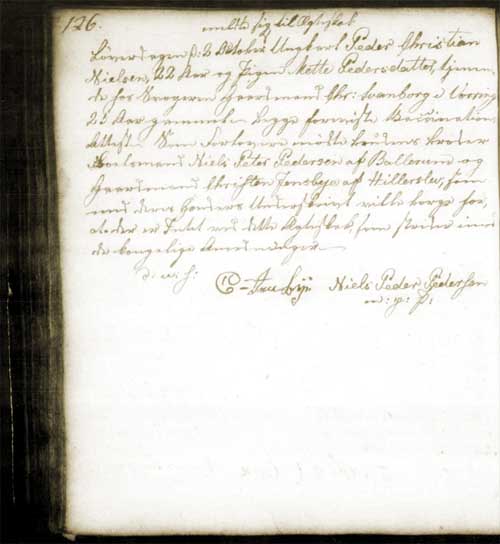 126. meldte sig til Ægteskab
Løverdagen d: 2 October Ungkarl Peder Christian
Nielsen, 22 Aar og Pigen Mette Pedersdatter, tjenen-
de hos Svogeren Gaardmand Chr: Svanborg i Vorring
25 Aar gammel. Begge foreviste Vaccinations
Attest. Som Forlovere mødte
Niels Peter Pedersen af Ballerum og
Gaardmand Christen Jensbye af Hillerslev, som
med deres Hænders Underskrivt ville borge for,
at der er Intet ved dette Ægteskab, som strider imod
de kongelige Anordninger.
d: u: s:
C Jensbye Niels Peder Pedersen
m: p: P: